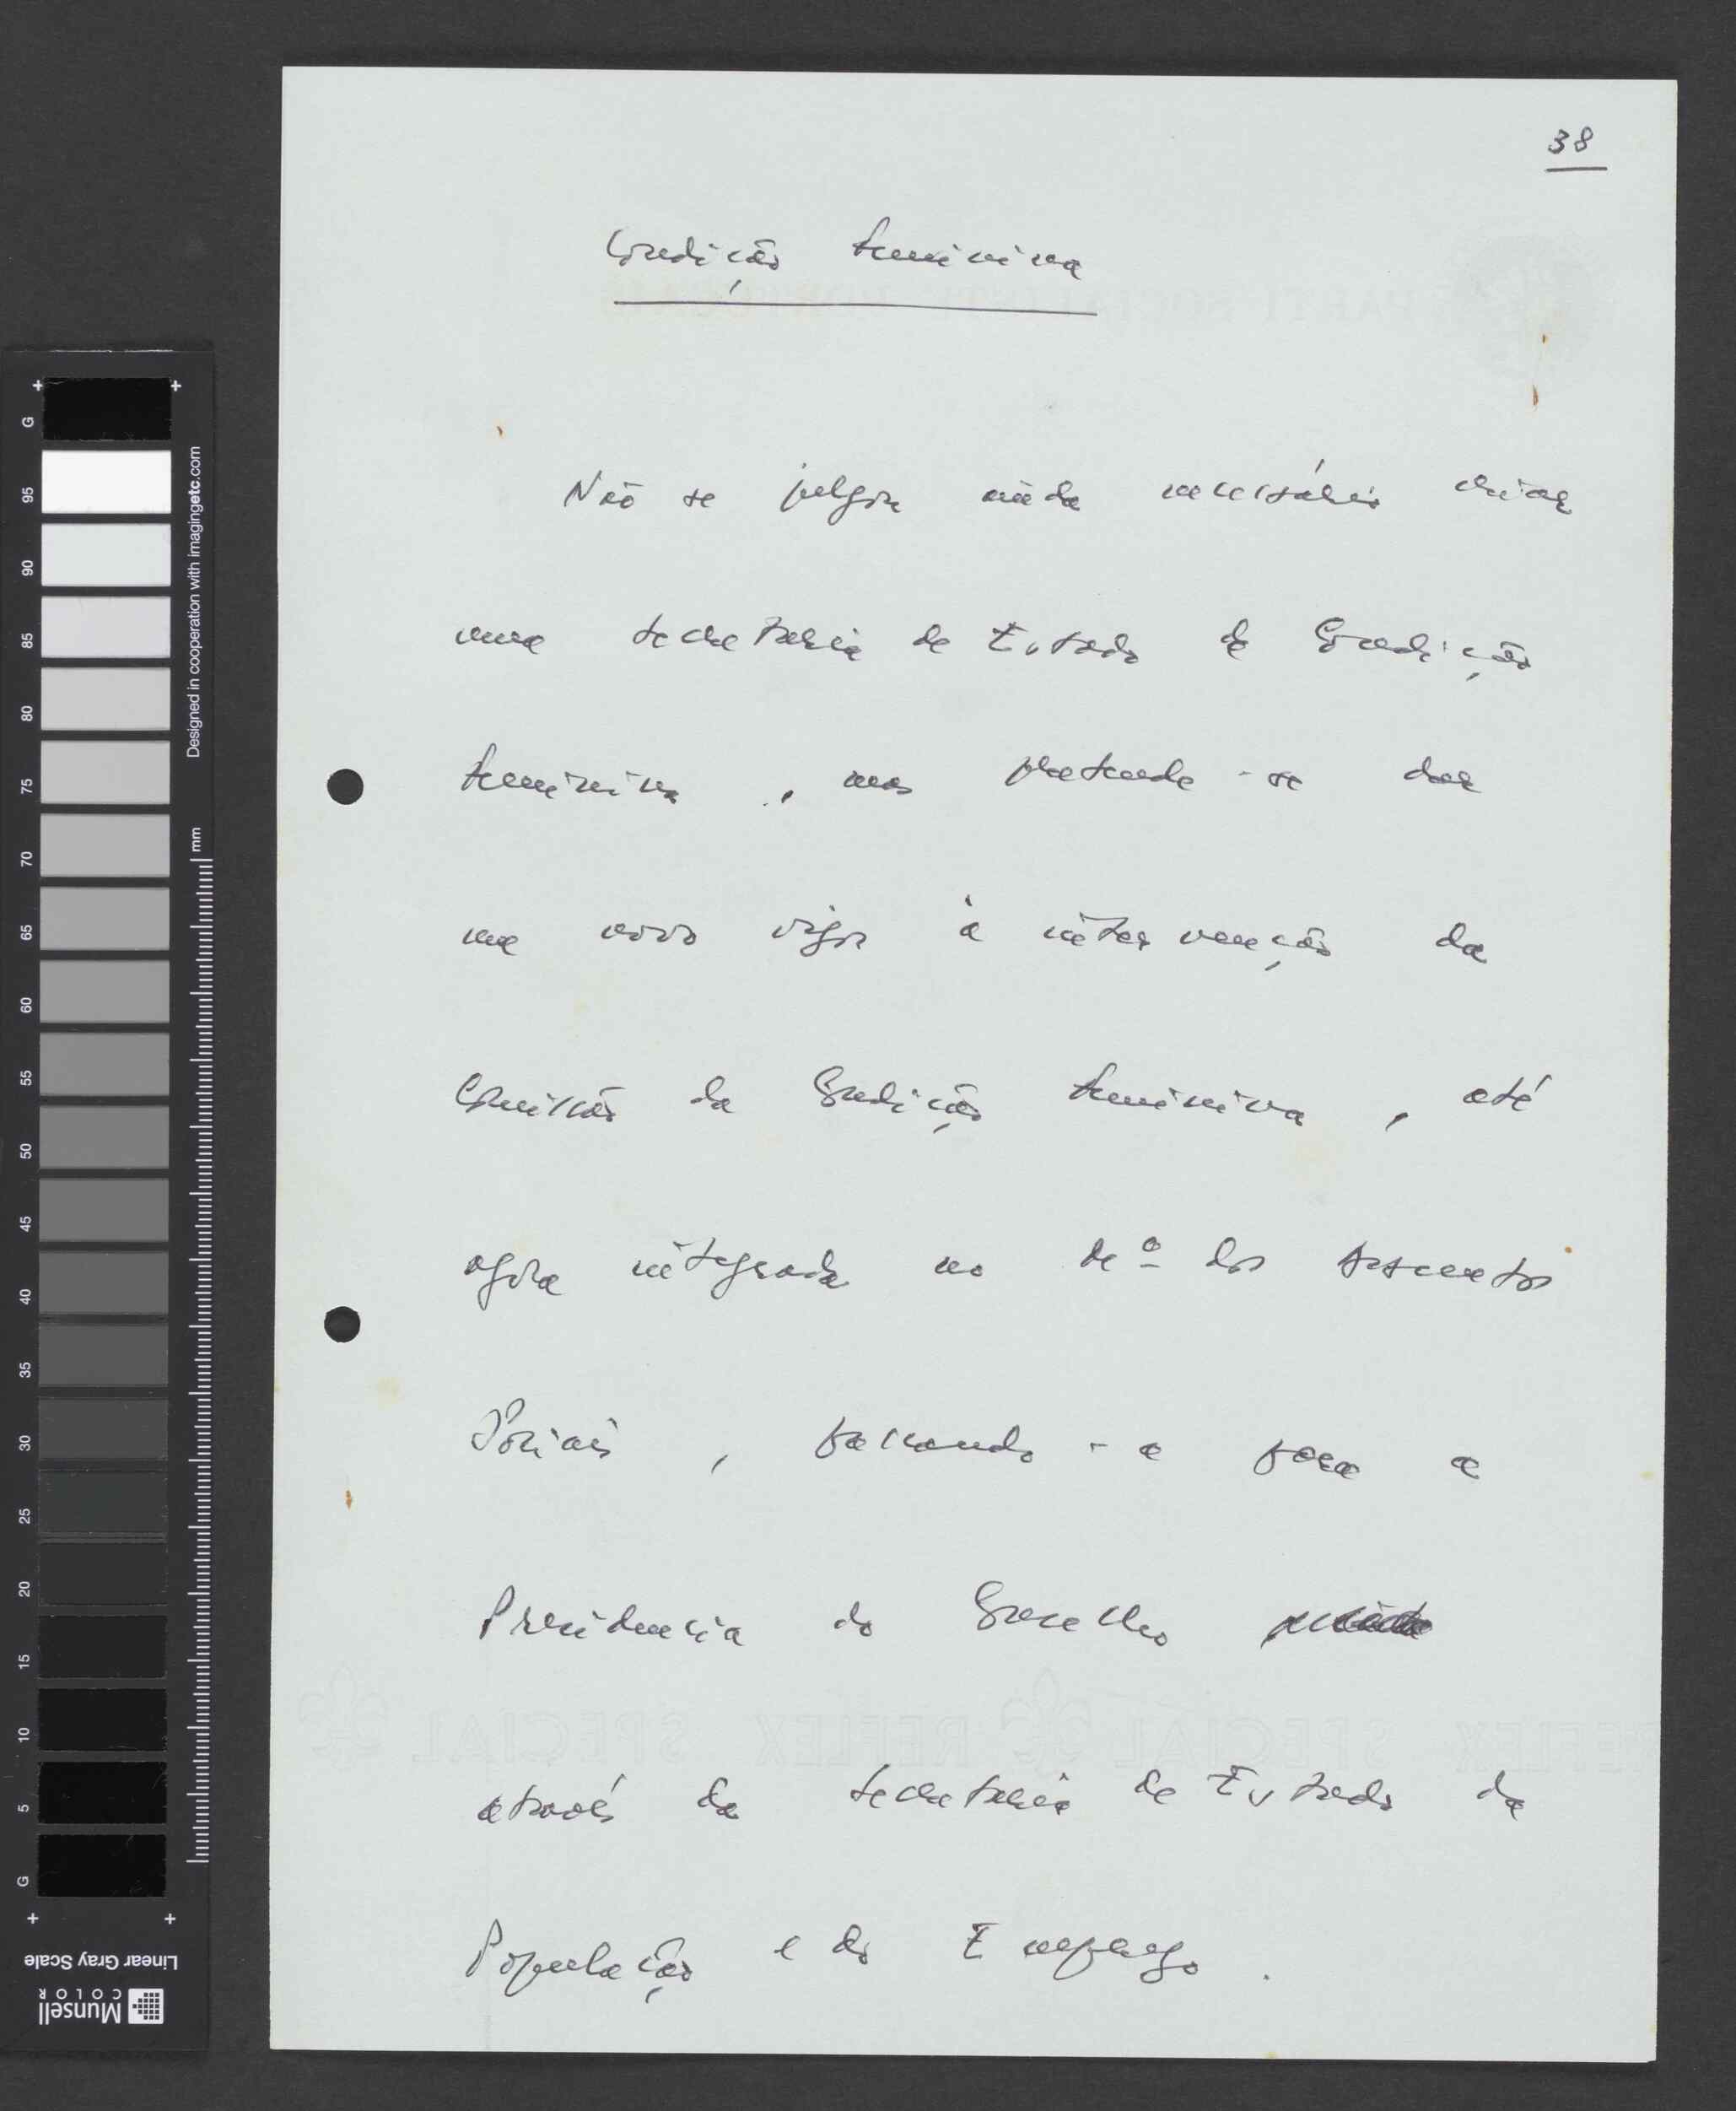 38
Condição feminina
Não se julgou ainda necessário criar
uma Secretaria de Estado da Condição
feminina, mas pretende-se dar
um novo vigor à intervenção da
Comissão da Condição feminina, até
agora integrada no M.º dos Assuntos
Sociais, passando-a para a
Presidencia do Conselho
através da Secretaria de Estado da
População e do Emprego.
PARTI SOCIALISTE PORTUGAIS
REFLEX SPECIAL REFLEX SPECIAL
G 95 90 85 80 75 70 65 60 55 50 45 40 35 30 25 20 15 10 5 G
Designed in cooperation with imagingetc.com
mm
Linear Gray Scale
Munsell
COLOR